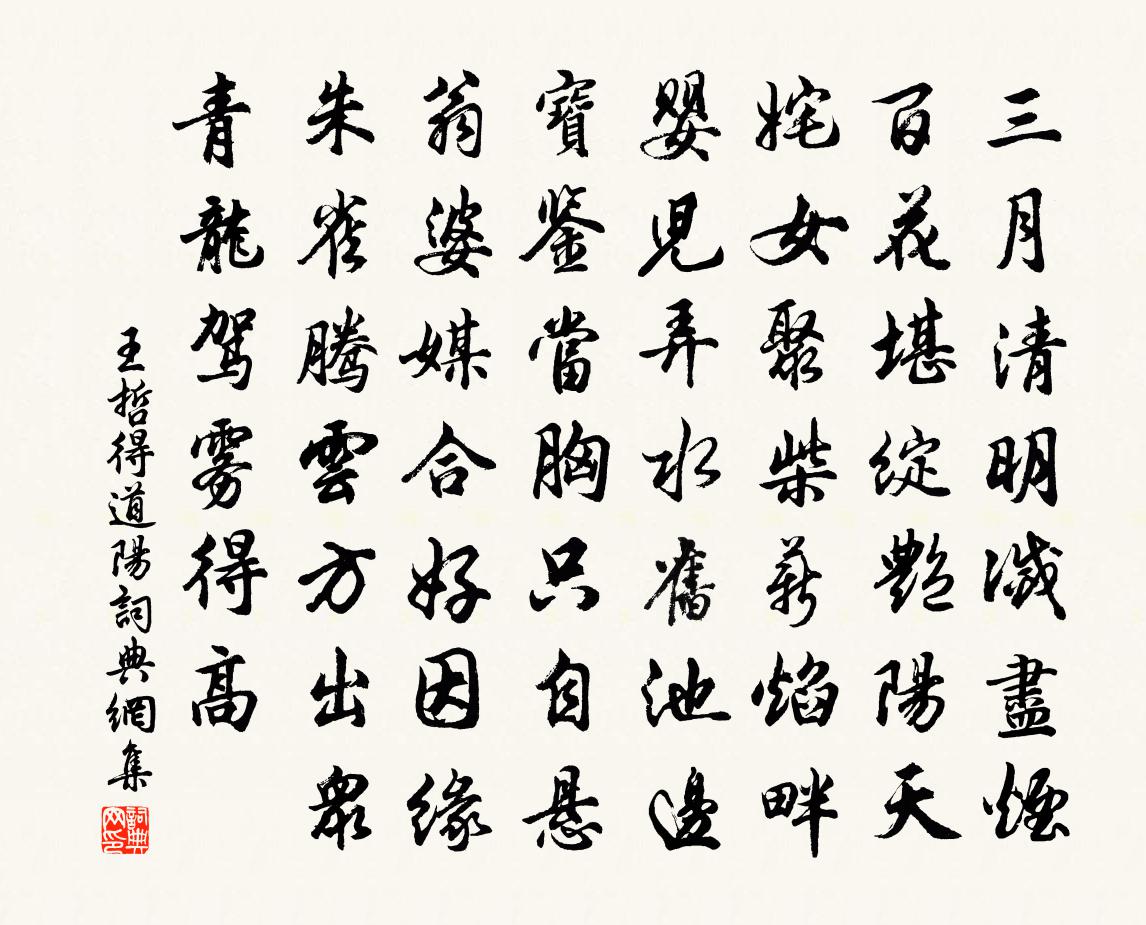 三月清明滅盡煙
百花堪綻艷陽天
姹女聚柴薪焰畔
嬰兒弄水舊池邊
寶鑒當胸只自懸
翁婆媒合好因緣
朱雀騰雲方出眾
青龍駕雾得高
王哲得道陽詞典網集
詞典网印